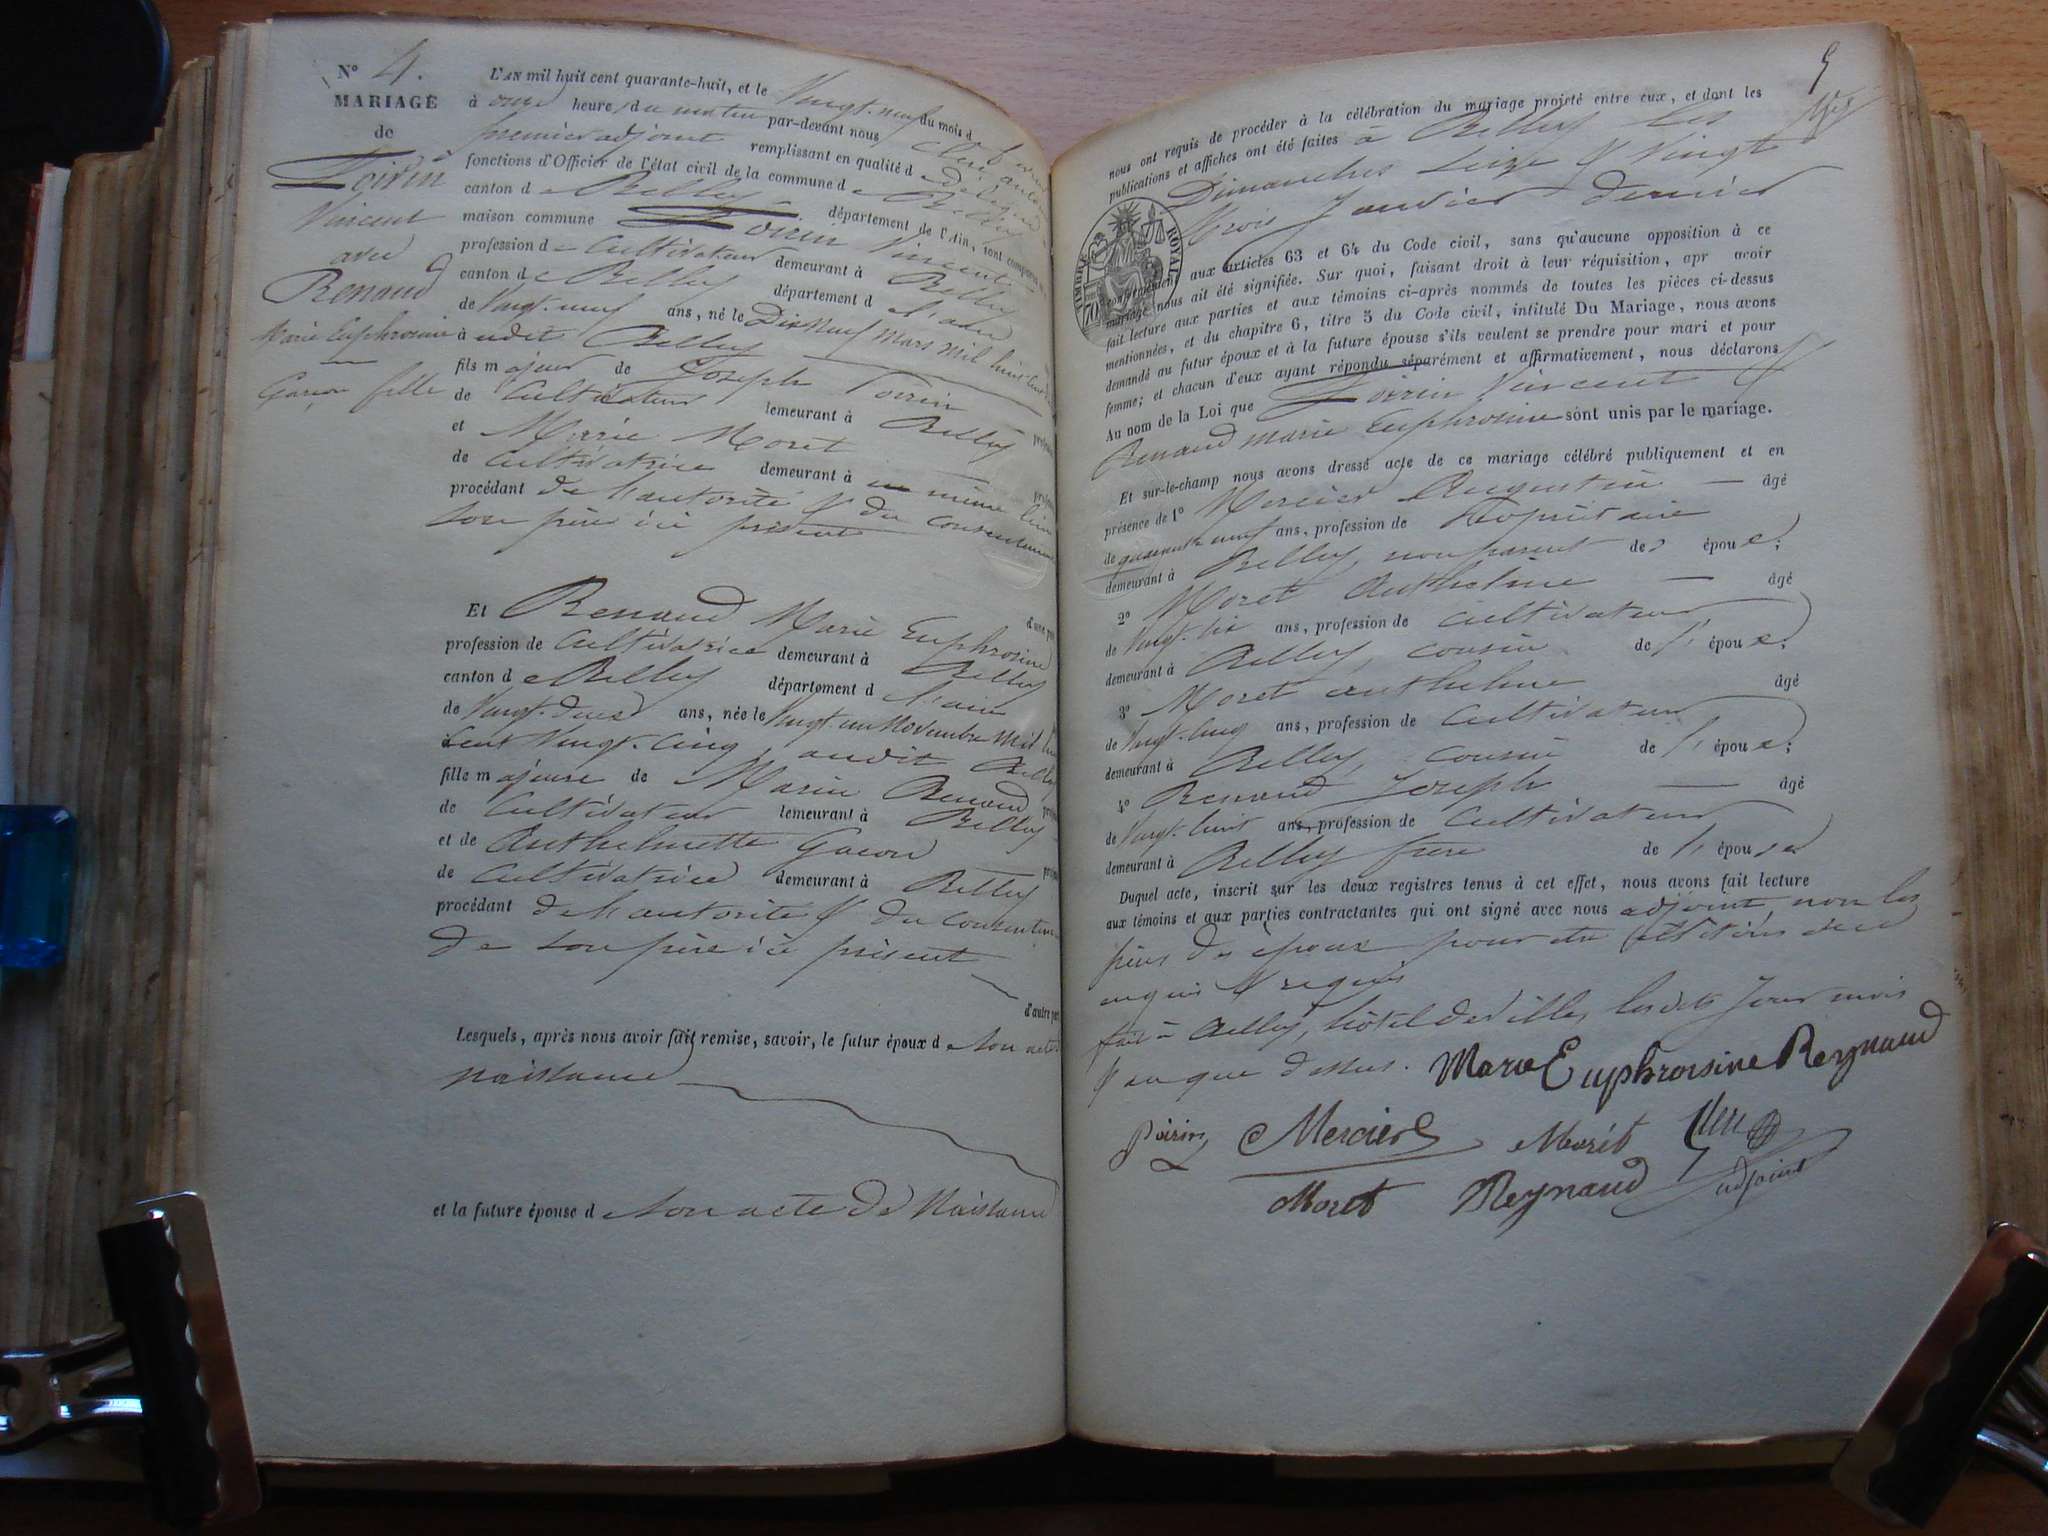 N° 4.
MARIAGE
de
Poirin
Vincent
avec
Renaud
Marie Euphrosine
Garçon fille
L'AN mil huit cent quarante-huit, et le Vingt-neuf du mois d
à onze heures du matin par-devant nous
premier adjoint remplissant en qualité de délégué
fonctions d'Officier de l'état civil de la commune de Belley
canton de Belley département de l'Ain, sont comparus
maison commune Poirin Vincent
profession de Cultivateur demeurant à Belley
canton de Belley département d l'ain
de Vingt-neuf ans, né le Dix Neuf Mars mil huit cent
à udit Belley
fils majeur de Joseph Poirin
de Cultivateur demeurant à Belley
et Marie Moret
de Cultivatrice demeurant à même lieu
procédant de l'autorité & du consentement
son père ici présent
d'une part
Et Renaud Marie Euphrosine
profession de Cultivatrice demeurant à Belley
canton de Belley département d l'ain
de Vingt-deux ans, née le Vingt un Novembre Mil huit
Cent Vingt-cinq, audit Belley
fille majeure de Marin Renaud
de Cultivateur demeurant à Belley
et de Anthelmette Gacon
de Cultivatrice demeurant à Belley
procédant de l'autorité & du consentement
de son père ici présent
d'autre part
Lesquels, après nous avoir fait remise, savoir, le futur époux de son acte
naissance
et la future épouse d son acte de Naissance
5
nous ont requis de procéder à la célébration du mariage projeté entre eux, et dont les
publications et affiches ont été faites à Belley les
Dimanches Seize & Vingt
trois Janvier dernier
TIMBRE ROYAL
70
conformément aux articles 63 et 64 du Code civil, sans qu'aucune opposition à ce
mariage nous ait été signifiée. Sur quoi, faisant droit à leur réquisition, apr avoir
fait lecture aux parties et aux témoins ci-après nommés de toutes les pièces ci-dessus
mentionnées, et du chapitre 6, titre 5 du Code civil, intitulé Du Mariage, nous avons
demandé au futur époux et à la future épouse s'ils veulent se prendre pour mari et pour
femme; et chacun d'eux ayant répondu séparément et affirmativement, nous déclarons
Au nom de la Loi que Poirin Vincent &
Renaud Marie Euphrosine sont unis par le mariage.
Et sur-le-champ nous avons dressé acte de ce mariage célébré publiquement et en
présence de 1° Mercier Augustin âgé
de quarante neuf ans, profession de Propriétaire
demeurant à Belley, non parent des épou
2° Moret Anthelme âgé
de Vingt-six ans, profession de Cultivateur
demeurant à Belley, cousin de l'épou
3° Moret anthelme âgé
de Vingt-cinq ans, profession de Cultivateur
demeurant à Belley, cousin de l'épou
4° Renaud Joseph âgé
de Vingt-huit ans, profession de Cultivateur
demeurant à Belley frère de l'épouse
Duquel acte, inscrit sur les deux registres tenus à cet effet, nous avons fait lecture
aux témoins et aux parties contractantes qui ont signé avec nous adjoint non les
pères des époux pour être illitérés de ce
enquis & requis
fait à Belley, hôtel de Ville, lesdits Jour mois
& an que dessus. Marie Euphroisine Reynaud
Poirin Mercier Morét
Moret Reynaud adjoint